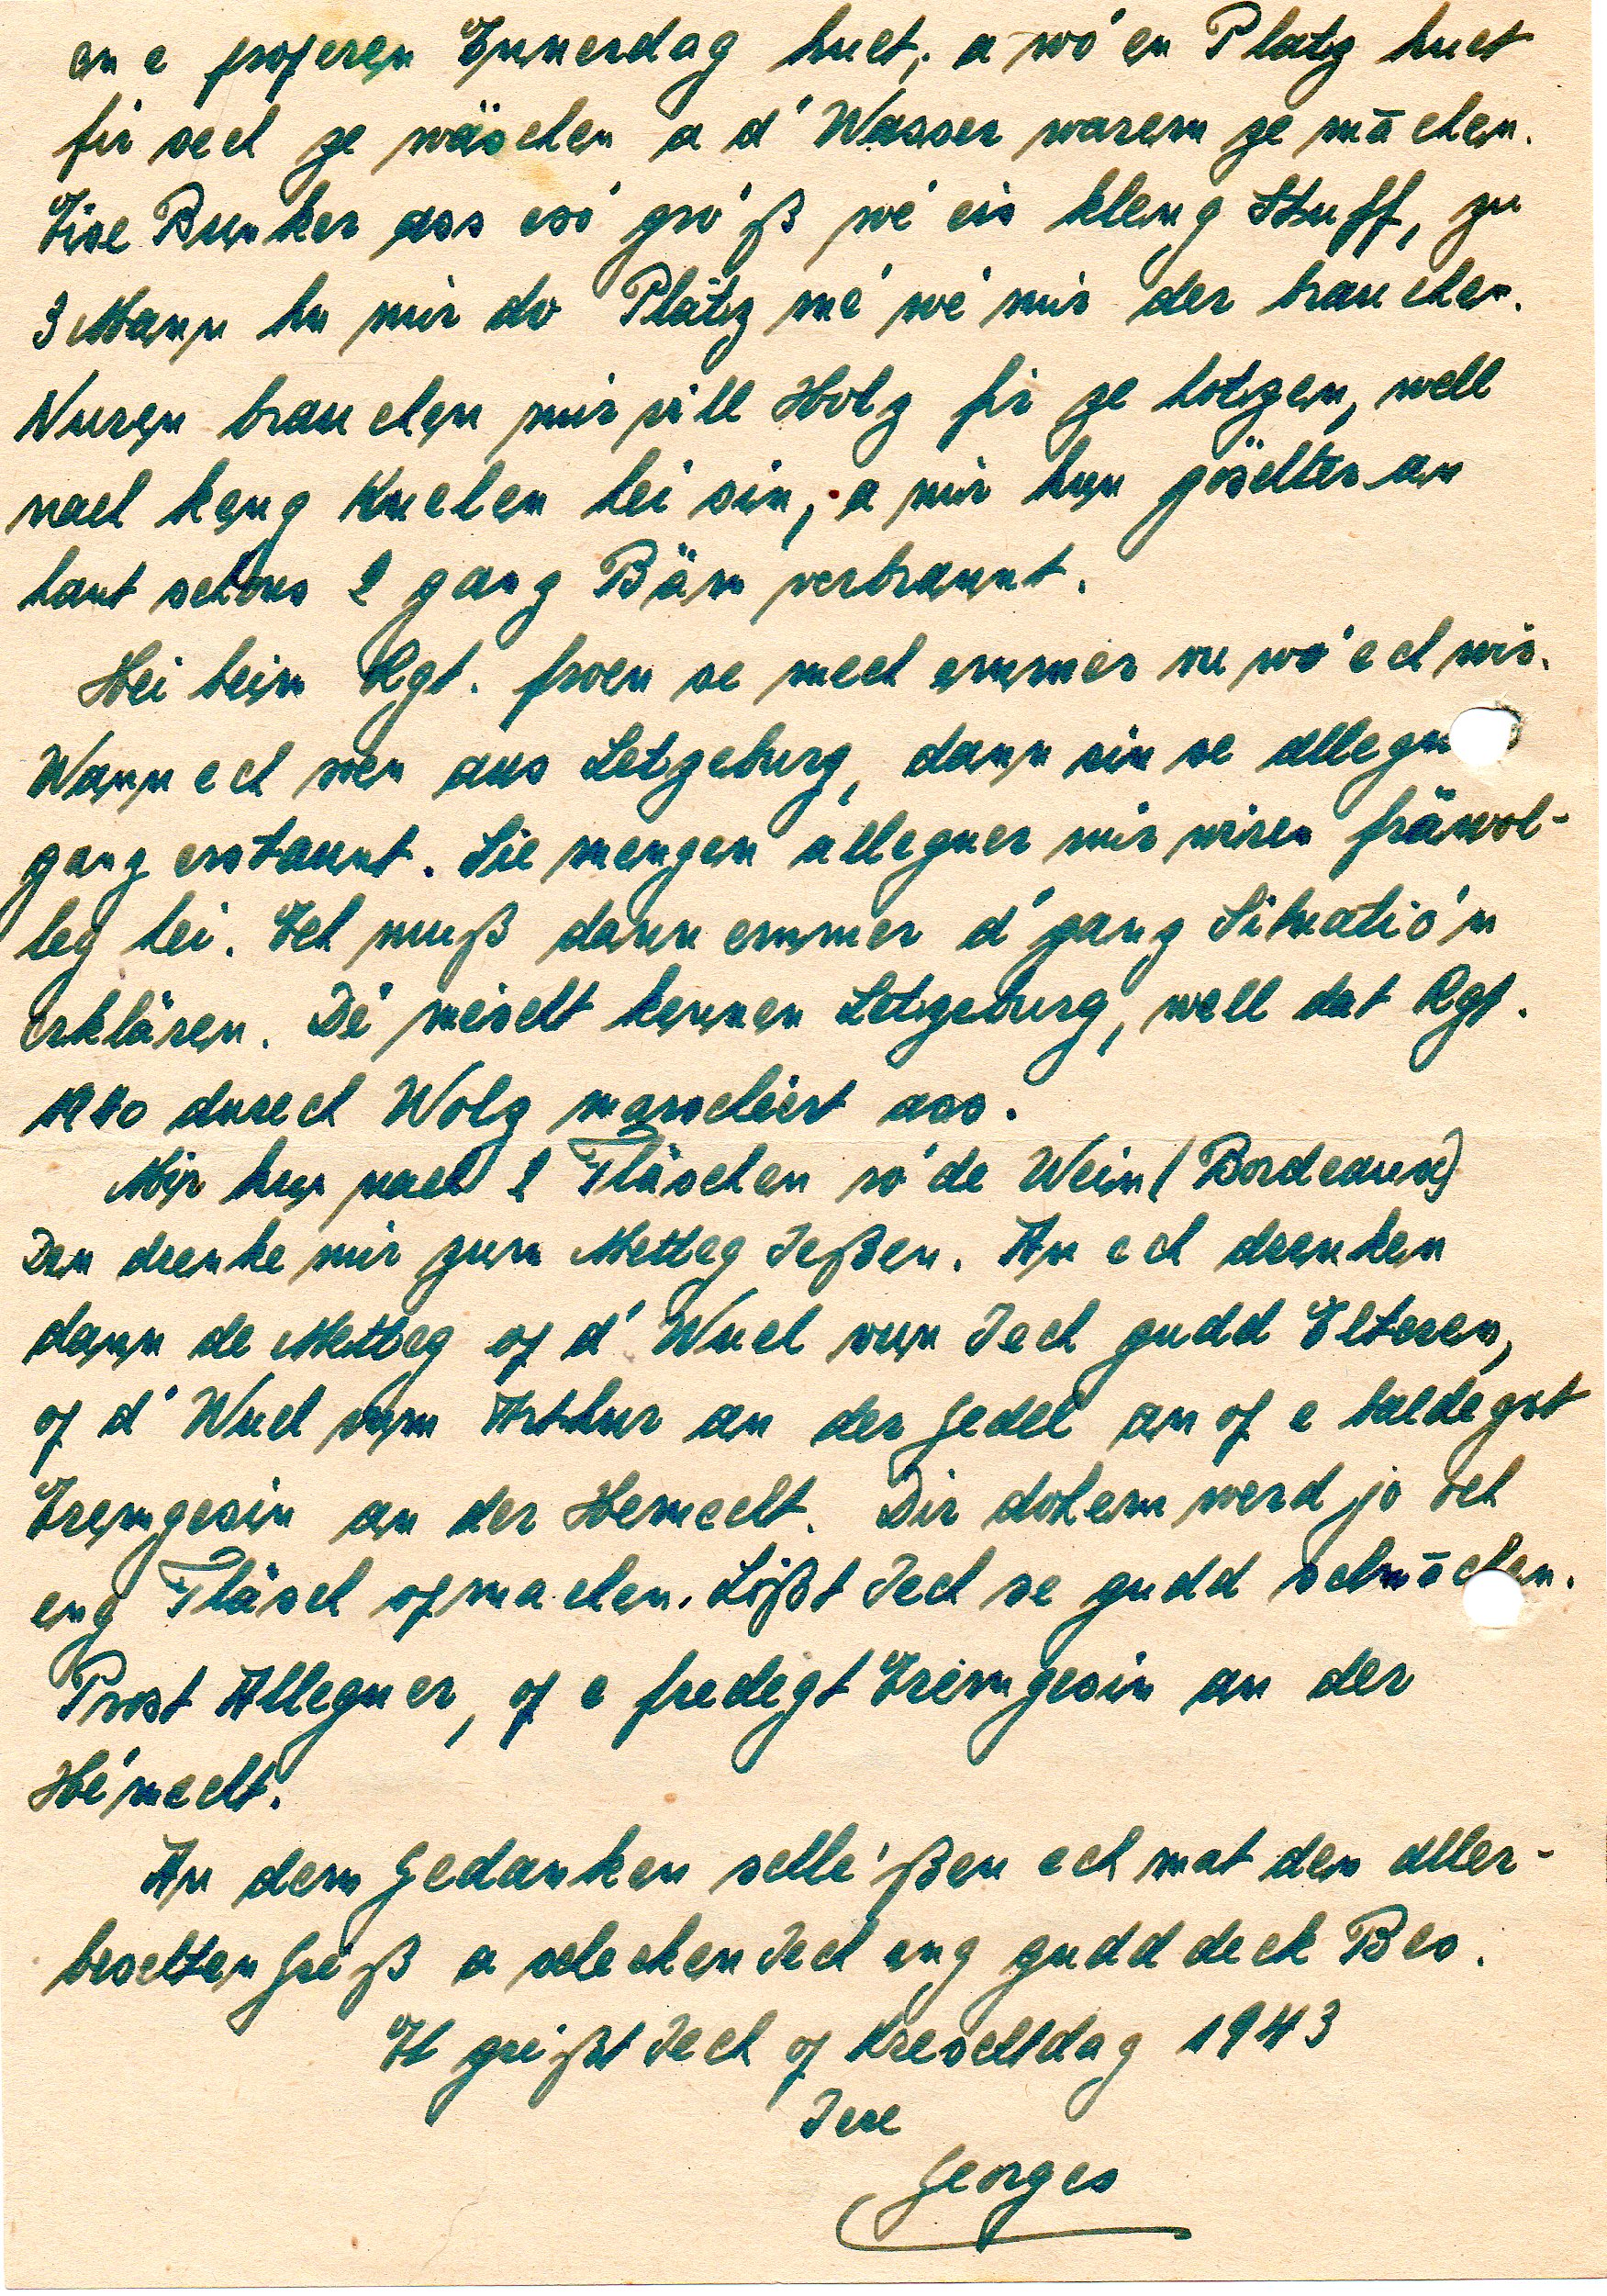 an e properen Ennerdag huet, a wó en Platz huet
fir sech ze wäschen a d' Wasser warem ze māchen.
Eise Bunker ass esó gróß wé eis kleng Stuff, zu
3 Mann hu mir do Plātz mé wé mir der brauchen.
Nuren brauchen mir vill Holz fir ze hétzen, well
nach keng Kuelen hei sin, a mir hun göschter an
haut schons 2 ganz Bäm verbrannt.
Hei beim Rgt. froen se mech emmer vu wó ech wir.
Wann ech soen aus Letzeburg, dann sin se allegu
ganz erstaunt. Sie mengen alleguer mir wiren fräwol-
leg hei. Ech muß dann emmer d' ganz Situatió'n
erklären. Dé méscht kennen Letzeburg, well dat Rgt.
1940 duerch Wolz marschéert ass.
Mir hun nach 2 Fläschen ró'de Wein (Bordeaux)
Den drenke mir zum Metteg Ießen. An ech drenken
dann de Metteg of d' Wuel vun Iech gudd Elteren,
of d' Wuel vum Arthur an der Gedel an of e baldegst
Erëmgesin an der Hemecht. Dir dohem werd jo och
eng Fläsch opmachen. Lößt Iech se gudd schmāchen.
Prost Alleguer, of e fredegt Erëmgesin an der
Hé'mecht.
An dem Gedanken schlé'ßen ech mat den aller-
beschten Gréß a schecken Iech eng gudd deck Bes.
Et gréißt Iech of Kreschtdag 1943
Iere
Georges